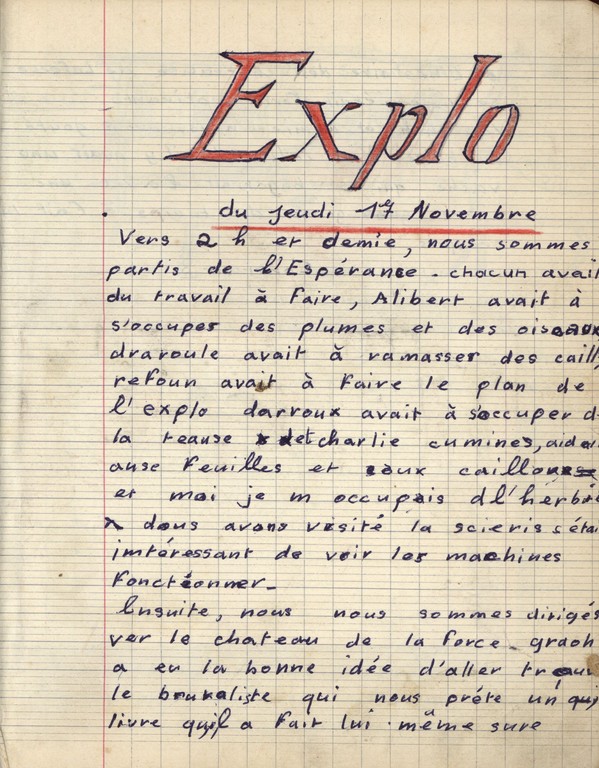 Explo
du jeudi 17 Novembre
Vers 2 h et demie, nous sommes
partis de l'Espérance - chacun avait
du travail à faire, Alibert avait à
s'occuper des plumes et des oiseaux
draroule avait à ramasser des caill
refoun avait à faire le plan de
l'explo darroux avait à s'occuper d
la teause et charlie cumines, aide
ause feuilles et aux cailloux
et moi je m occupais d l'herbi
dous avons visité la scieris s étai
imtéressant de voir les machines
fonctionner -
Ensuite, nous nous sommes dirigés
ver le chateau de la force - graoh
a eu la bonne idée d'aller trouv
le brukaliste qui nous prête un
livre qu'il a fait lui - même sure